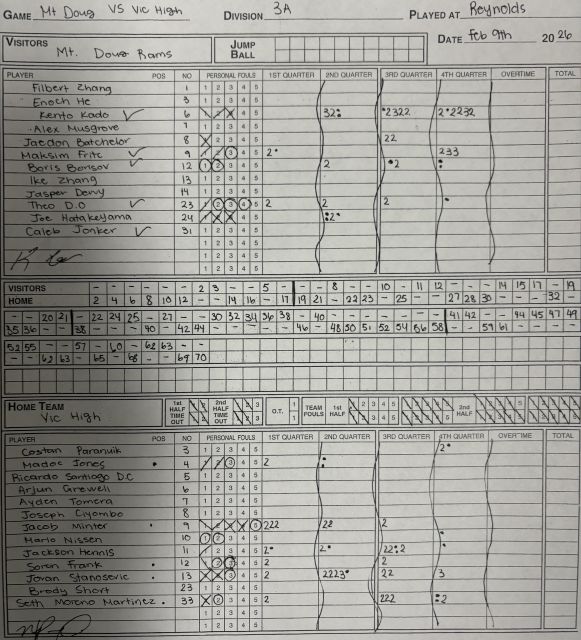 GAME Mt Doug VS Vic High DIVISION 3A PLAYED AT Reynolds
DATE Feb 9th 2026
VISITORS Mt. Doug Rams JUMP BALL
PLAYER POS NO PERSONAL FOULS 1ST QUARTER 2ND QUARTER 3RD QUARTER 4TH QUARTER OVERTIME TOTAL
Filbert Zhang 1 1 2 3 4 5
Enoch He 3 1 2 3 4 5
Kento Kado 6 32: •2322 2•2232
Alex Musgrove 7 1 2 3 4 5
Jaedon Batchelor 8 22
Maksim Fritc 9 2• 233
Boris Borisov 12 2 •2 :
Ike Zhang 13 1 2 3 4 5
Jasper Dervy 14 1 2 3 4 5
Theo D.O 23 2 2 2 •
Joe Hatakeyama 24 :2•
Caleb Jonker 31 1 2 3 4 5
VISITORS - - - - - - 2 3 - - 5 - - - 8 - - 10 - 11 12 - - - 14 15 17 - 19
HOME 2 4 6 8 10 12 - - 14 16 - 17 19 21 - 22 23 - 25 - - 27 28 30 - - - 32 -
- - 20 21 - 22 24 25 - 27 - 30 32 34 36 38 - 40 - - - - - - - 41 42 - - 44 45 47 49
35 36 - - 38 - - - 40 - 42 44 - - - - - 46 - 48 50 51 52 54 56 58 - - 59 61 - - - -
52 55 - - 57 - 60 - 62 63 - -
- - 62 63 - 65 - 68 - - 69 70
HOME TEAM Vic High 1st HALF TIME OUT 2nd HALF TIME OUT O.T. 1 TEAM FOULS 1st HALF 2nd HALF
PLAYER POS NO PERSONAL FOULS 1ST QUARTER 2ND QUARTER 3RD QUARTER 4TH QUARTER OVERTIME TOTAL
Costan Paranuik 3 2•
Madoc Jones • 4 2 :
Ricardo Santiago D.C 5
Arjun Grewell 6
Ayden Tomera 7
Joseph Ciyombo 8
Jacob Minter • 9 222 22 2
Mario Nissen 10 •
Jackson Hennis • 11 2• 2• 22:2 •
Soren Frank • 12 2 2
Jovan Stanosevic • 13 2 2223• 22 3
Brody Short 23
Seth Moreno Martinez • 33 2 222 :2